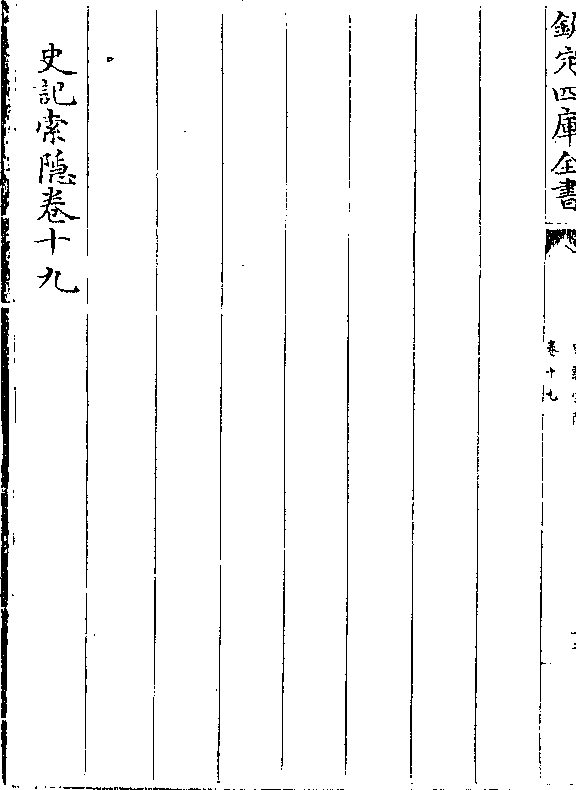 欽定四庫全書
卷十九
史記索隱卷十九